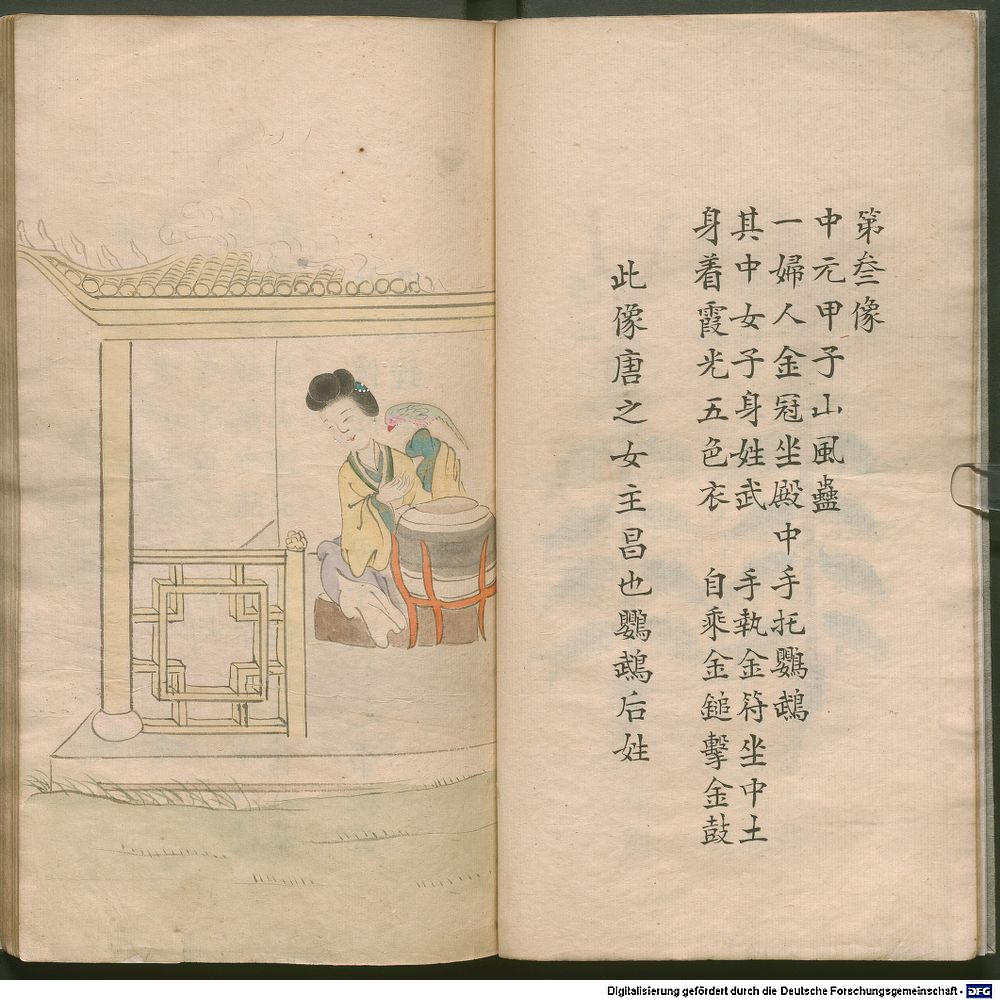 第叁像
中元甲子山風蠱
一婦人金冠坐殿中手托鸚鵡
其中女子身姓武　手執金符坐中土
身着霞光五色衣　自乘金鎚擊金鼓
此像唐之女主昌也鸚鵡后姓
Digitalisierung gefördert durch die Deutsche Forschungsgemeinschaft - DFG